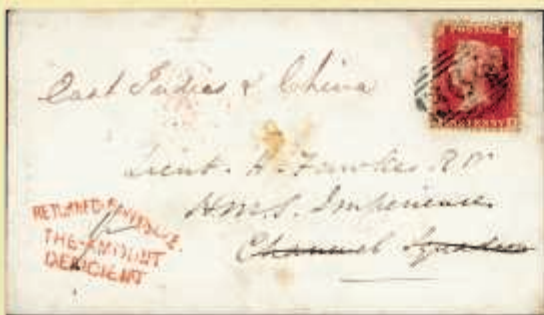 POSTAGE
ONE PENNY
East Indies & China
Lieut. H. Fawkes. R.N.
H.M.S. Imperieuse
Channel Squadron
RETURNED FOR POSTAGE.
THE AMOUNT
DEFICIENT